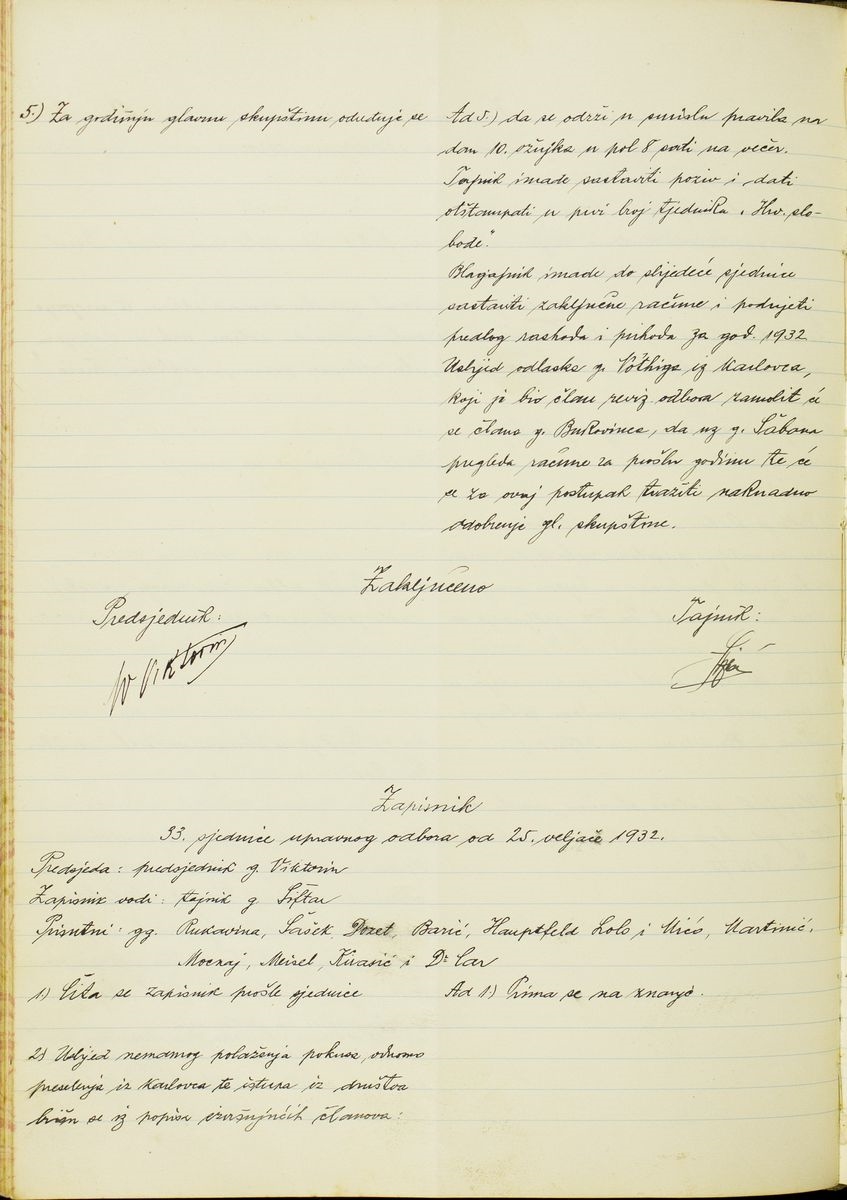 5.) Za godišnju glavnu skupštinu određuje se
Ad 5.) da se održi u smislu pravila na
dan 10. ožujka u pol 8 sati na večer.
Tajnik imade sastaviti poziv i dati
oštampati u prvi broj tjednika „Hrv. slo-
bode".
Blagajnik imade do slijedeće sjednice
sastaviti zaključne račune i podnijeti
predlog rashoda i prihoda za god. 1932
Uslijed odlaska g. Vöthiga iz Karlovca,
koji je bio član reviz. odbora zamolit će
se člana g. Bukovinca, da uz g. Šabana
pregleda račune za prošlu godinu te će
se za ovaj postupak tražiti naknadno
odobrenje gl. skupštine.
Zaključeno
Predsjednik:
Tajnik:
Viktorin
Zapisnik
33. sjednice upravnog odbora od 25. veljače 1932.
Predsjeda: predsjednik g. Viktorin
Zapisnik vodi: tajnik g. Šiftar
Prisutni: gg. Rukavina, Šašek, Dozet, Barić, Hauptfeld Lolo i Mićo, Martinić,
Mocnaj, Meisel, Kirasić i Dr Car
1) Čita se zapisnik prošle sjednice
Ad 1.) Prima se na znanje.
2) Uslijed nemarnog polaženja pokusa, odnosno
preselenja iz Karlovca te istupa iz društva
brišu se iz popisa izvršujućih članova: